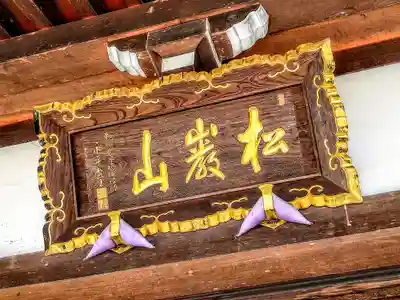 松巖山